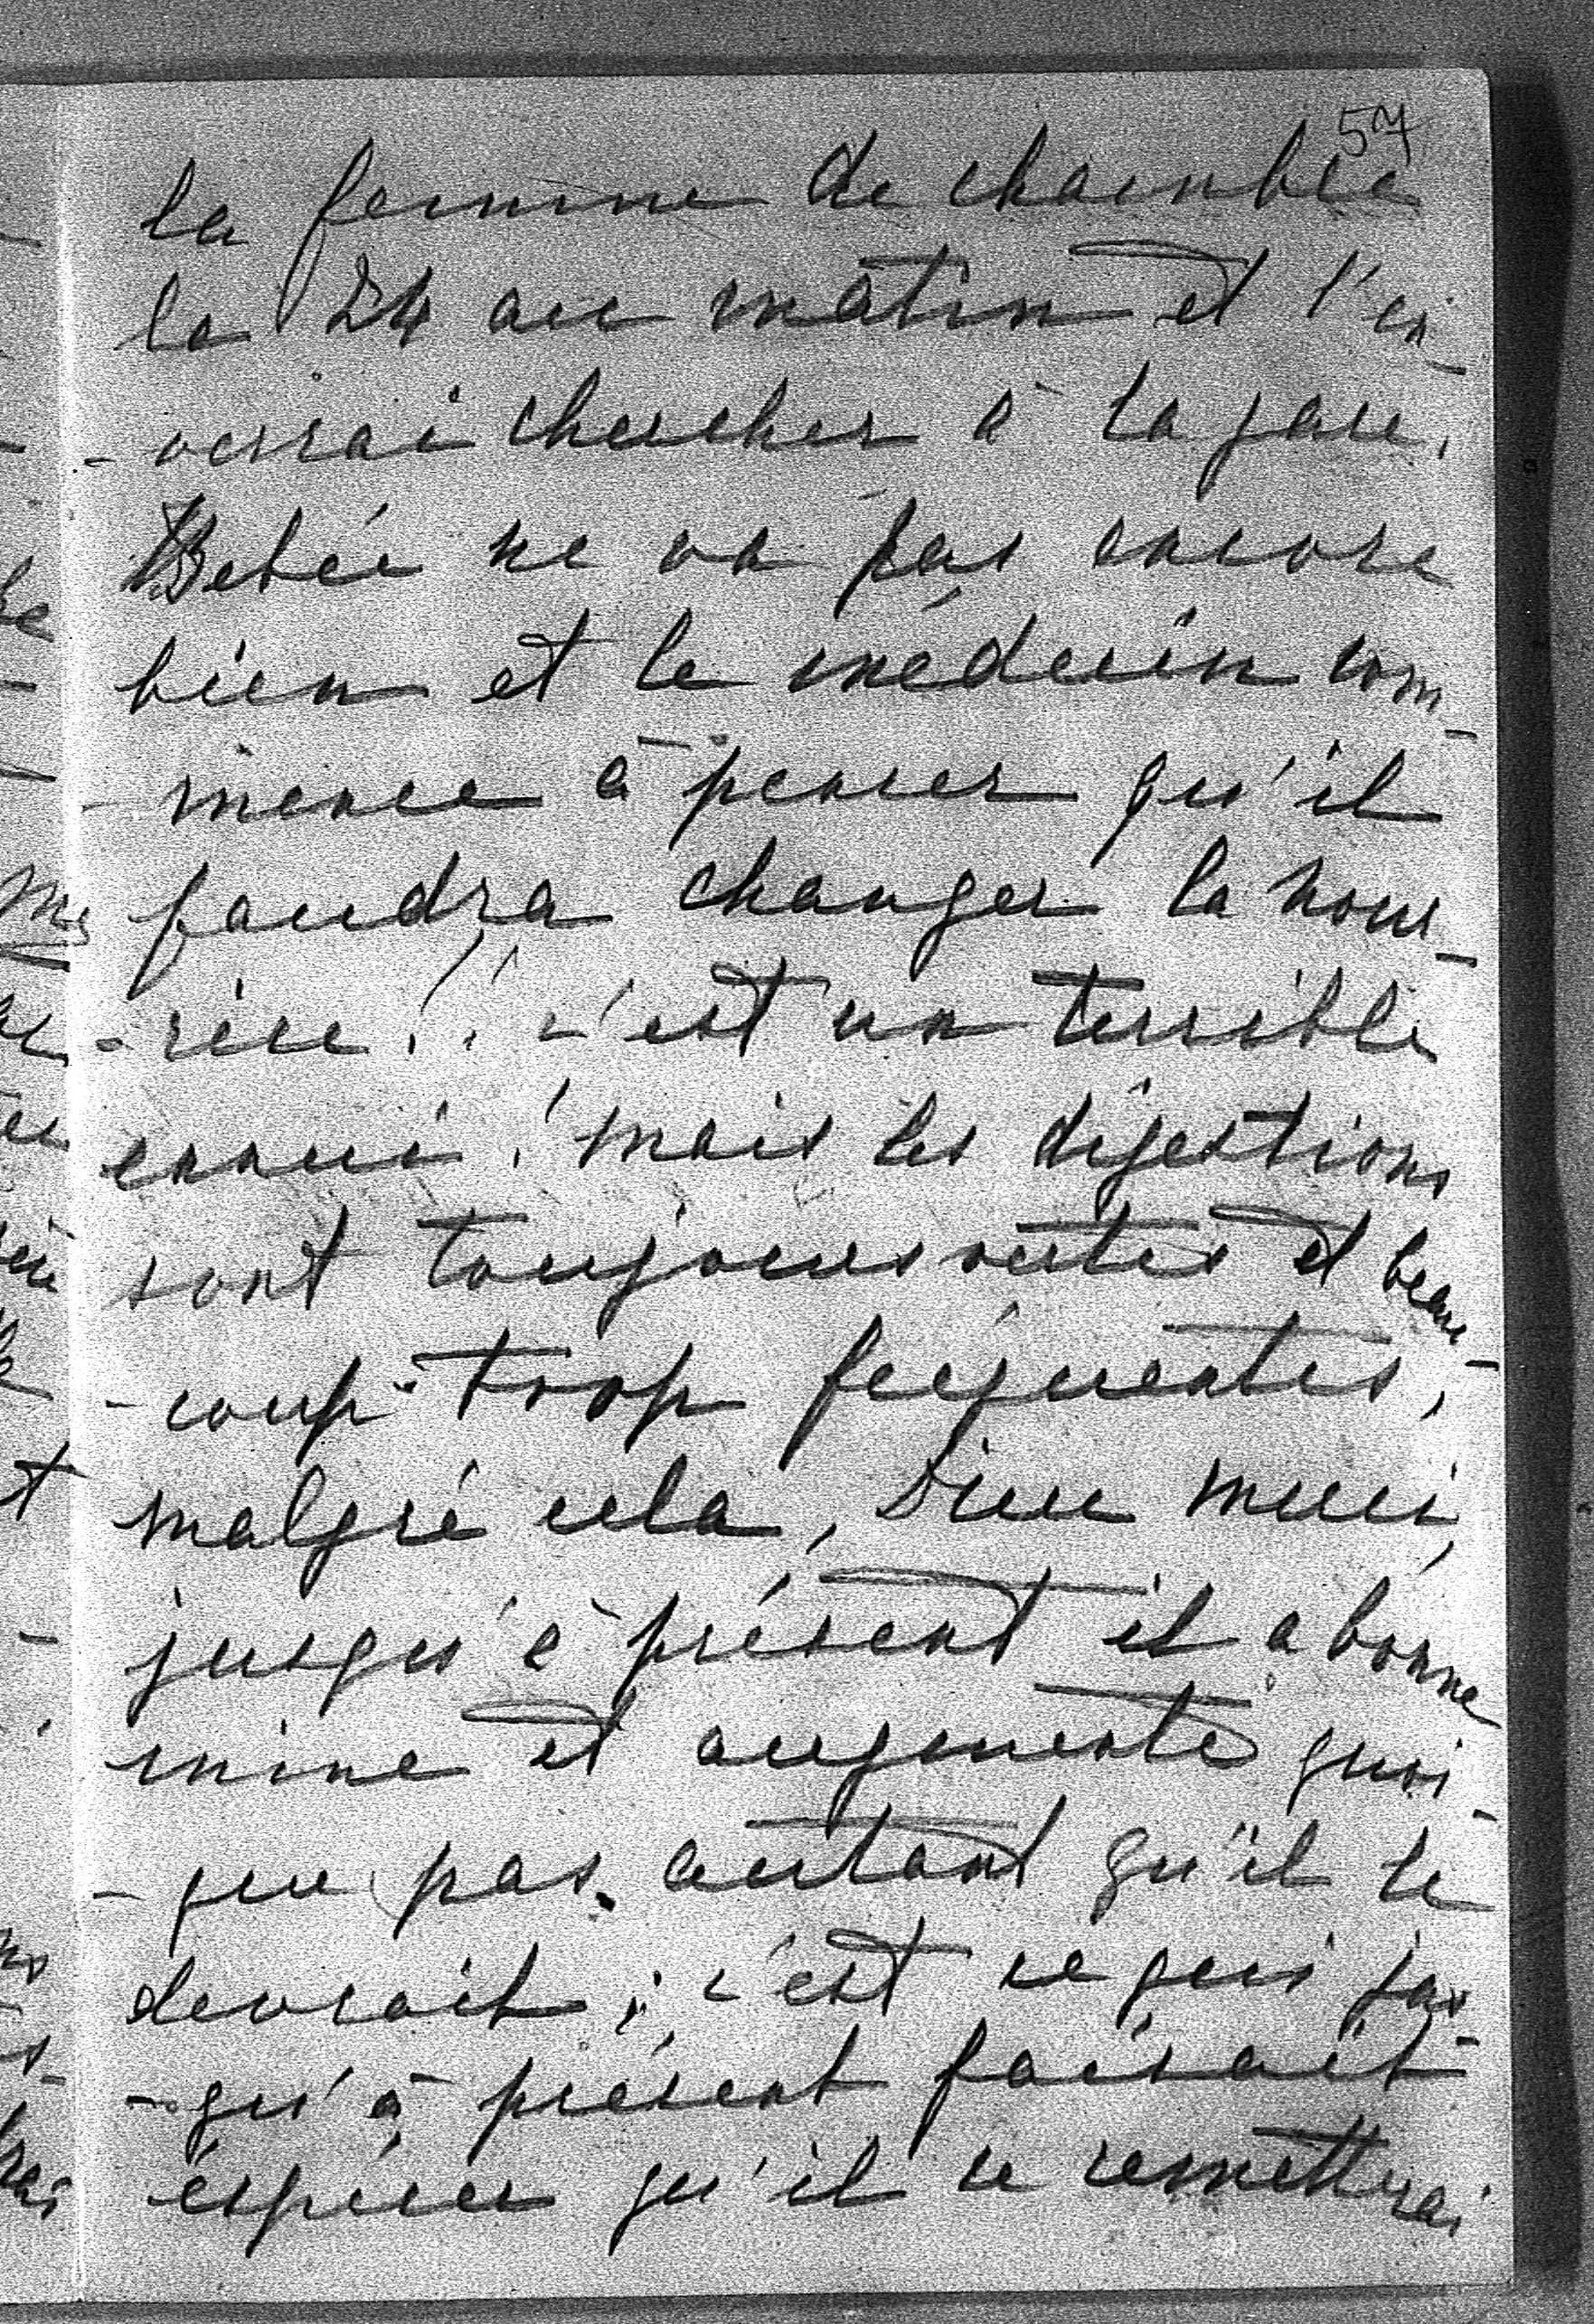 57
la femme de chambre
le 24 au matin et l'en-
-verrai chercher à la gare.
Bébée ne va pas encore
bien et le médecin com-
-mence à penser qu'il
faudra changer la nour-
-rice!! c'est un terrible
ennui! mais les digestions
sont toujours vertes et beau-
-coup trop fréquentes;
malgré cela, Dieu merci,
jusqu'à présent il a bonne
mine et augmente quoi-
-que pas autant qu'il le
devrait; c'est ce qui jus-
-qu'à présent faisait
espérer qu'il se remettrai